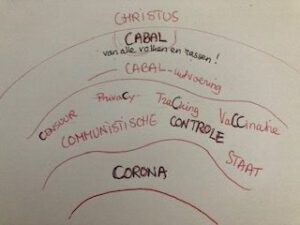 CHRISTUS
CABAL
van alle volken en rassen!
CABAL-uitvoering
CENSUUR Privacy Tracking VaCCinatie
COMMUNISTISCHE CONTROLE STAAT
CORONA